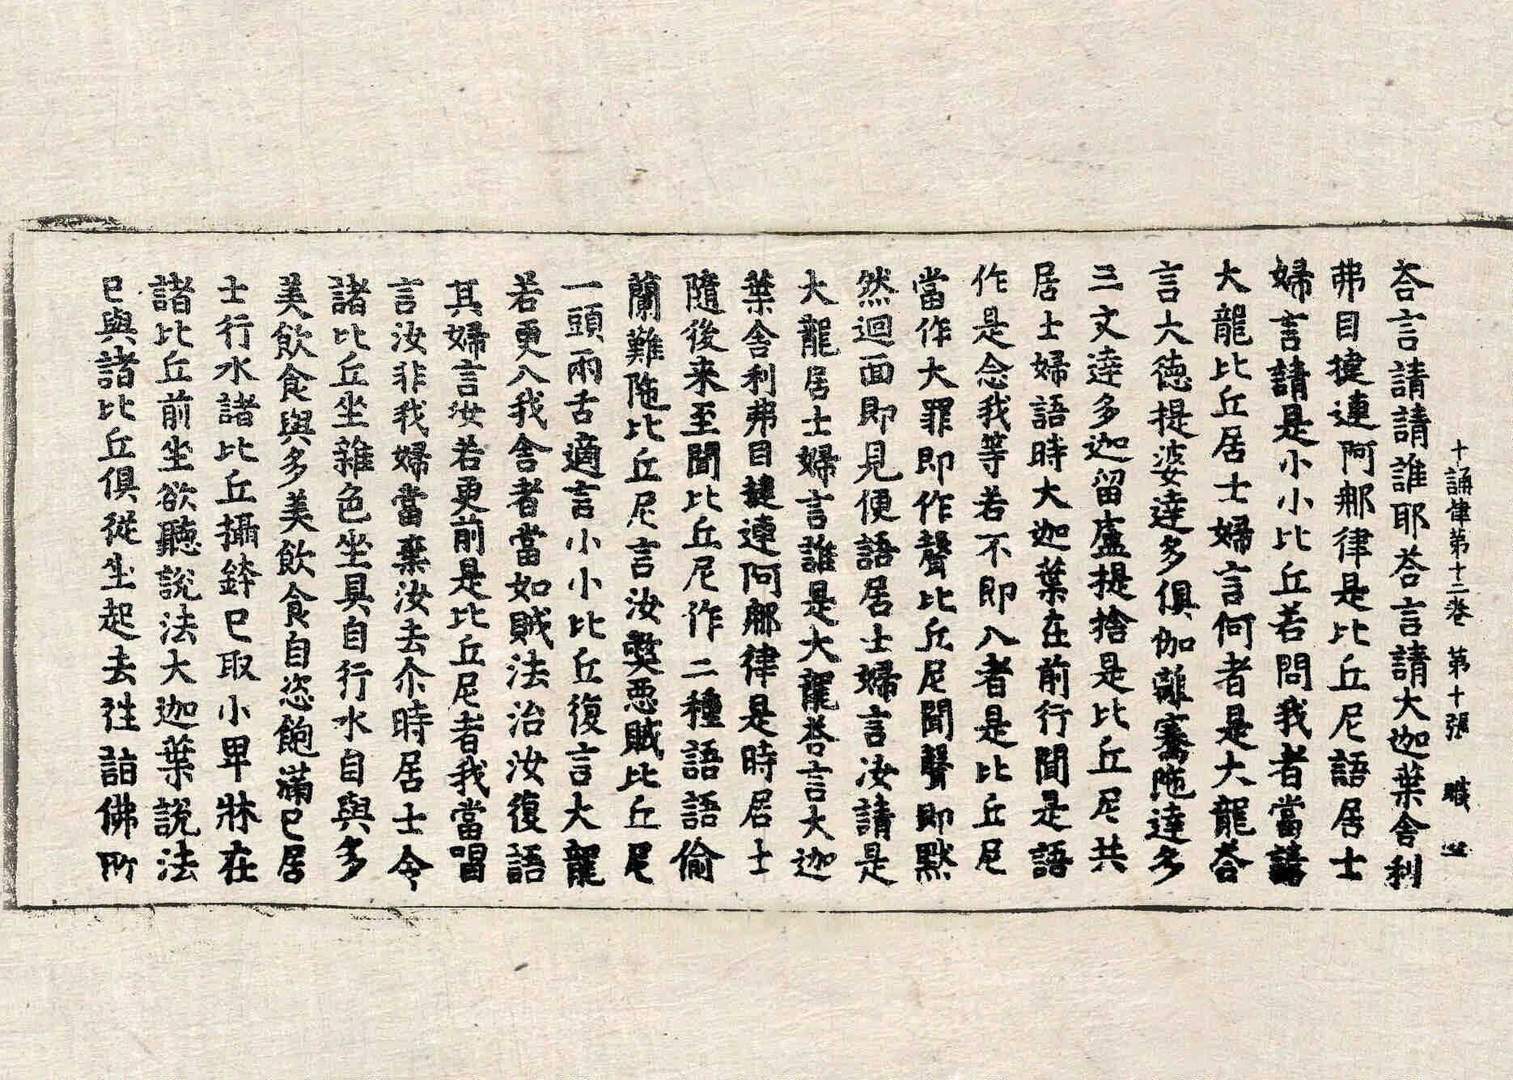 十誦律第十二卷 第十張 職
荅言請請誰耶荅言請大迦葉舍利
弗目揵連阿那律是比丘尼語居士
婦言請是小小比丘若問我者當請
大龍比丘居士婦言何者是大龍荅
言大徳提婆達多俱伽離騫陁達多
三文達多迦留盧提捨是比丘尼共
居士婦語時大迦葉在前行聞是語
作是念我等若不即入者是比丘尼
當作大罪即作聲比丘尼聞聲即黙
然迴面即見便語居士婦言汝請是
大龍居士婦言誰是大龍荅言大迦
葉舍利弗目揵連阿那律是時居士
隨後来至聞比丘尼作二種語語偷
蘭難陁比丘尼言汝弊惡賊比丘尼
一頭兩舌適言小小比丘復言大龍
若更入我舍者當如賊法治汝復語
其婦言汝若更前是比丘尼者我當唱
言汝非我婦當棄汝去尒時居士令
諸比丘坐雜色坐具自行水自與多
美飲食與多美飲食自恣飽滿已居
士行水諸比丘攝鉢已取小卑牀在
諸比丘前坐欲聽說法大迦葉說法
已與諸比丘俱從坐起去往詣佛所